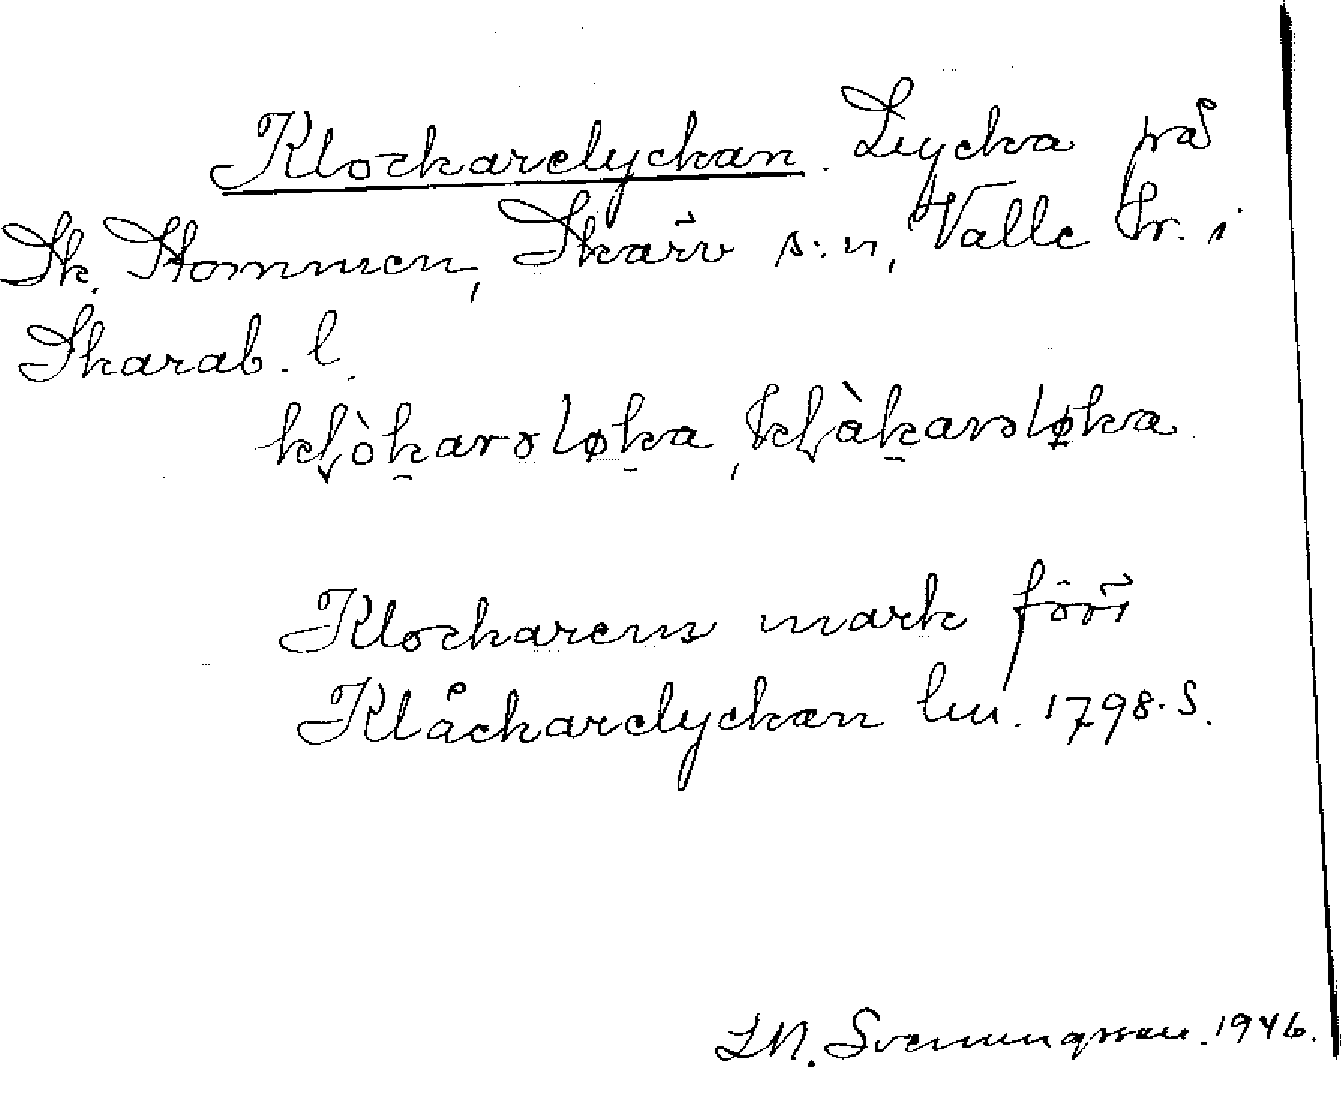 Klockarelyckan. Lycka på
Sk. Stommen, Skärv s:n, Valle hr. i
Skarab. l.
klòkarəløka, klàkarəløka
Klockarens mark förr
Klåckarelyckan lm. 1798. S.
Svenungsson. 1946.